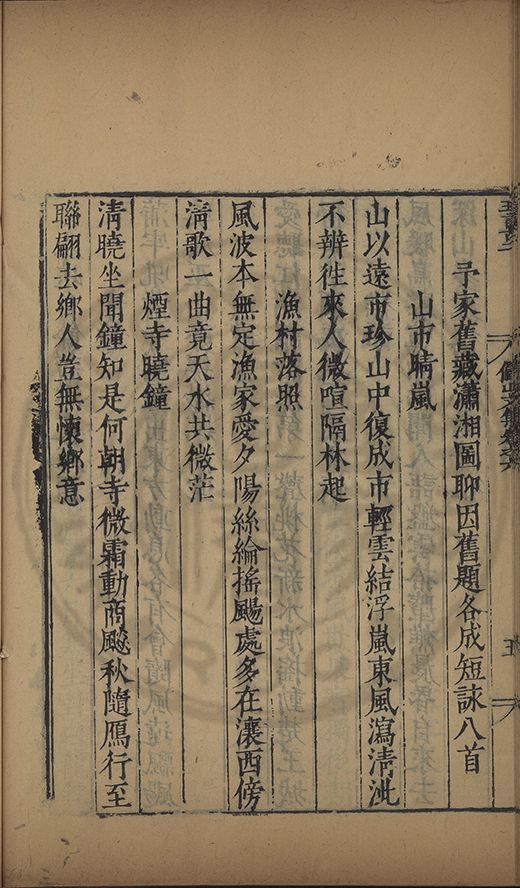 予家舊藏瀟湘圖聊因舊題各成短詠八首
山市晴嵐
山以遠市珍山中復成市輕雲結浮嵐東風瀉清泚
不辨徃來人微喧隔林起
漁村落照
風波本無定漁家愛夕陽絲綸搖颺處多在瀼西傍
清歌一曲竟天水共微茫
煙寺曉鐘
清曉坐聞鐘知是何朝寺微霜動商飈秋隨鴈行至
聯翩去鄉人豈無懷鄉意